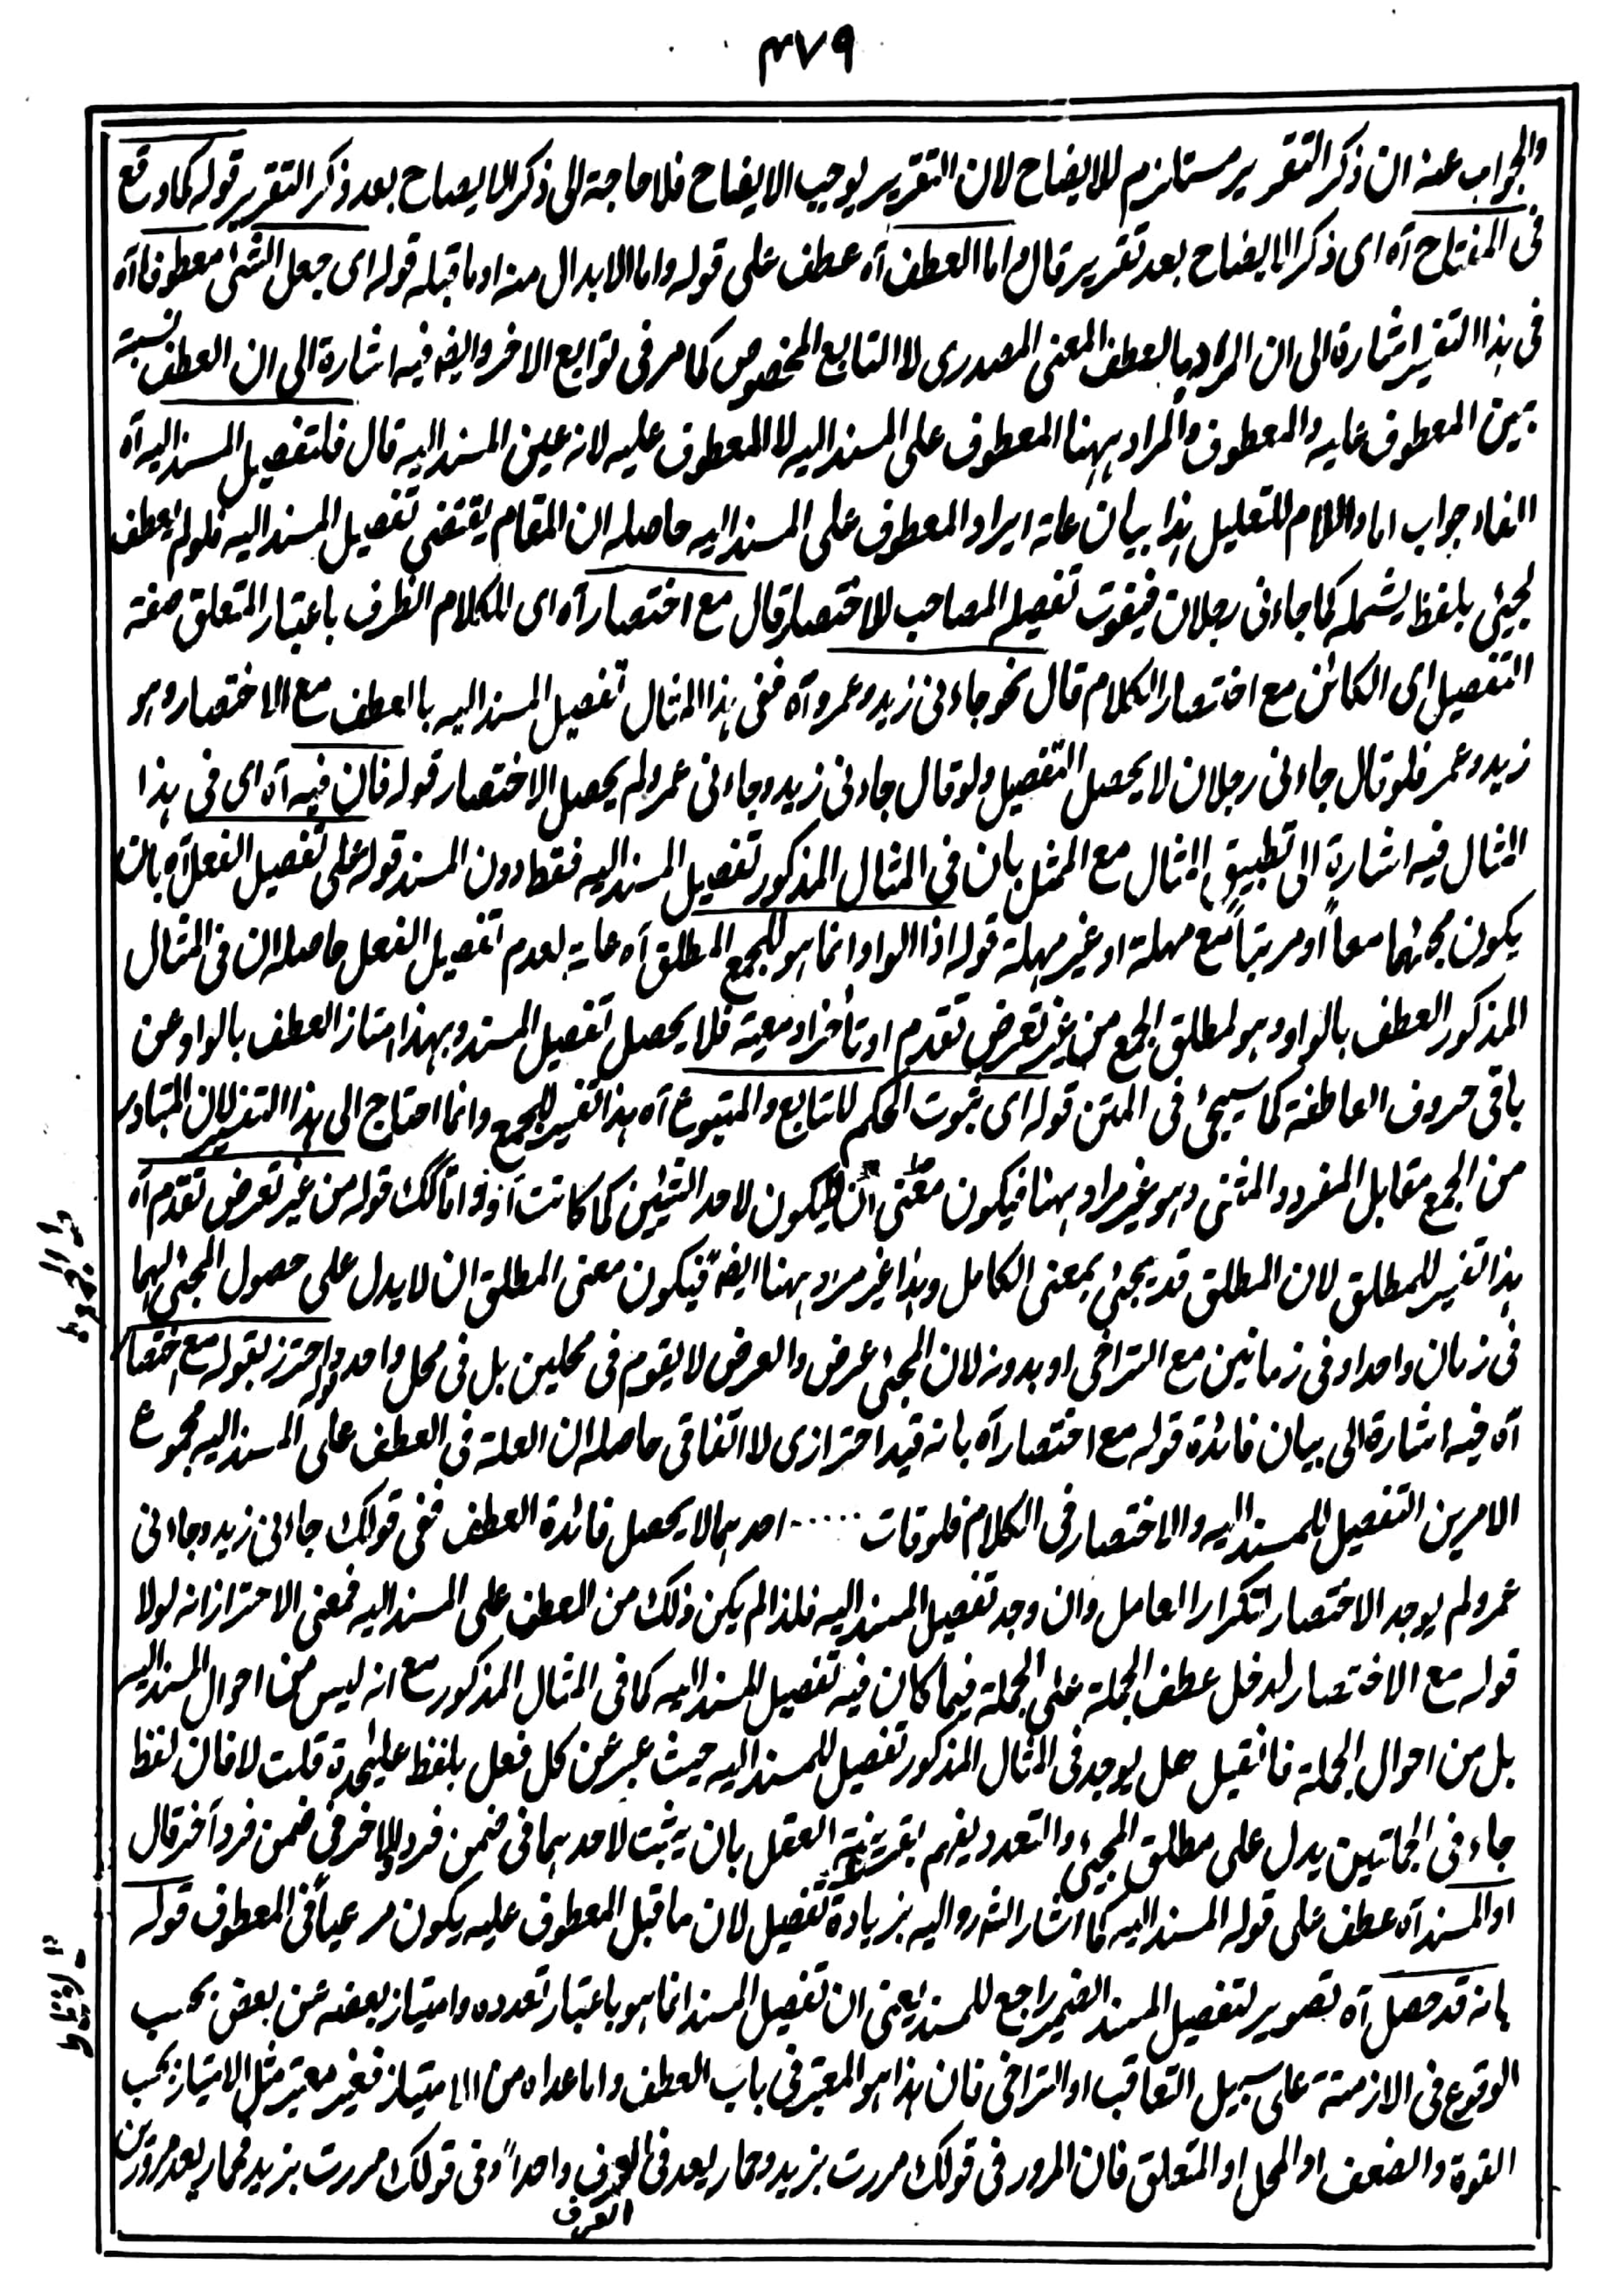 ٣٧٩
والجواب عنه ان ذكر التقرير مستلزم للايضاح لان التقرير يوجب الايضاح فلا حاجة الى ذكر الايضاح بعد ذكر التقرير قوله كما وقع
فى المفتاح آه اى ذكر الايضاح بعد تقرير قال واما العطف آه عطف على قوله واما الابدال منه او ما قبله قوله اى جعل الشئ معطوفا آه
فى هذا التفسير اشارة الى ان المراد بالعطف المعنى المصدرى لا التابع المخصوص كما مر فى توابع الاخر وايضا فيه اشارة الى ان العطف نسبة
بين المعطوف عليه والمعطوف والمراد ههنا المعطوف على المسند اليه لا المعطوف عليه لانه عين المسند اليه قال فلتفصيل المسند اليه آه
الفاء جواب اما واللام للتعليل هذا بيان علة ايراد المعطوف على المسند اليه حاصله ان المقام يقتضى تفصيل المسند اليه فلو لم يعطف
لجيئ بلفظ يشمله كما جاءنى رجلان فيفوت تفصيله المصاحب للاختصار قال مع اختصار آه اى للكلام الظرف باعتبار المتعلق صفة
التفصيل اى الكائن مع اختصار الكلام قال نحو جاءنى زيد وعمرو آه ففى هذا المثال تفصيل المسند اليه بالعطف مع الاختصار وهو
زيد وعمر فلو قال جاءنى رجلان لا يحصل التفصيل ولو قال جاءنى زيد وجاءنى عمرو لم يحصل الاختصار قوله فان فيه آه اى فى هذا
المثال فيه اشارة الى تطبيق المثال مع الممثل بان فى المثال المذكور تفصيل المسند اليه فقط دون المسند قوله على تفصيل الفعل آه بان
يكون مجيئهما معاً او مرتباً مع مهلة او غير مهلة قوله اذ الواو انما هو للجمع المطلق آه علة لعدم تفصيل الفعل حاصله ان فى المثال
المذكور العطف بالواو وهو لمطلق الجمع من غير تعرض تقدم او تأخر او معية فلا يحصل تفصيل المسند وبهذا امتاز العطف بالواو عن
باقى حروف العاطفة كما سيجئ فى المتن قوله اى ثبوت الحكم للتابع والمتبوع آه هذا تفسير للجمع وانما احتاج الى هذا التفسير لان المتبادر
من الجمع مقابل المفرد والمثنى وهو غير مراد ههنا فيكون معنى ان لا يكون لاحد الشيئين كما كانت أو واما كك قوله من غير تعرض تقدم آه
هذا تفسير للمطلق لان المطلق قد يجئ بمعنى الكامل وهذا غير مراد ههنا ايضا فيكون معنى المطلق ان لا يدل على حصول المجئ لهما
فى زمان واحد او فى زمانين مع التراخى او بدونه لان المجئ عرض والعرض لا يقوم فى محلين بل فى محل واحد قوله واحترز بقوله مع اختصار
آه فيه اشارة الى بيان فائدة قوله مع اختصار آه بانه قيد احترازى لا اتفاقى حاصله ان العلة فى العطف على المسند اليه مجموع
الامرين التفصيل للمسند اليه والاختصار فى الكلام فلو فات ..... احدهما لا يحصل فائدة العطف ففى قولك جاءنى زيد وجاءنى
عمرو لم يوجد الاختصار لتكرار العامل وان وجد تفصيل المسند اليه فلذا لم يكن ذلك من العطف على المسند اليه فمعنى الاحتراز انه لولا
قوله مع الاختصار لدخل عطف الجملة على الجملة فيما كان فيه تفصيل للمسند اليه كما فى المثال المذكور مع انه ليس من احوال المسند اليه
بل من احوال الجملة فان قيل هل يوجد فى المثال المذكور تفصيل للمسند اليه حيث عبر عن كل فعل بلفظ عليحدة قلت لا فان لفظ
جاء فى الجملتين يدل على مطلق المجيئ والتعدد يفهم بقرينة العقل بان يثبت لاحدهما فى ضمن فرد وللاخر فى ضمن فرد آخر قال
او المسند آه عطف على قوله المسند اليه كما اشار الشه رو اليه بزيادة تفصيل لان ما قبل المعطوف عليه يكون مرعياً فى المعطوف قوله
بانه قد حصل آه تصوير لتفصيل المسند الضمير راجع للمسند يعنى ان تفصيل المسند انما هو باعتبار تعدده وامتياز بعضه عن بعض بحسب
الوقوع فى الازمنة على سبيل التعاقب او التراخى فان هذا هو المعتبر فى باب العطف واما عداه من الامتياز فغير معتبر مثل الامتياز بحسب
القوة والضعف او المحل او المتعلق فان المرور فى قولك مررت بزيد وحمار يعد فى العرف واحداً وفى قولك مررت بزيد فحمار يعد مرورين
العرف